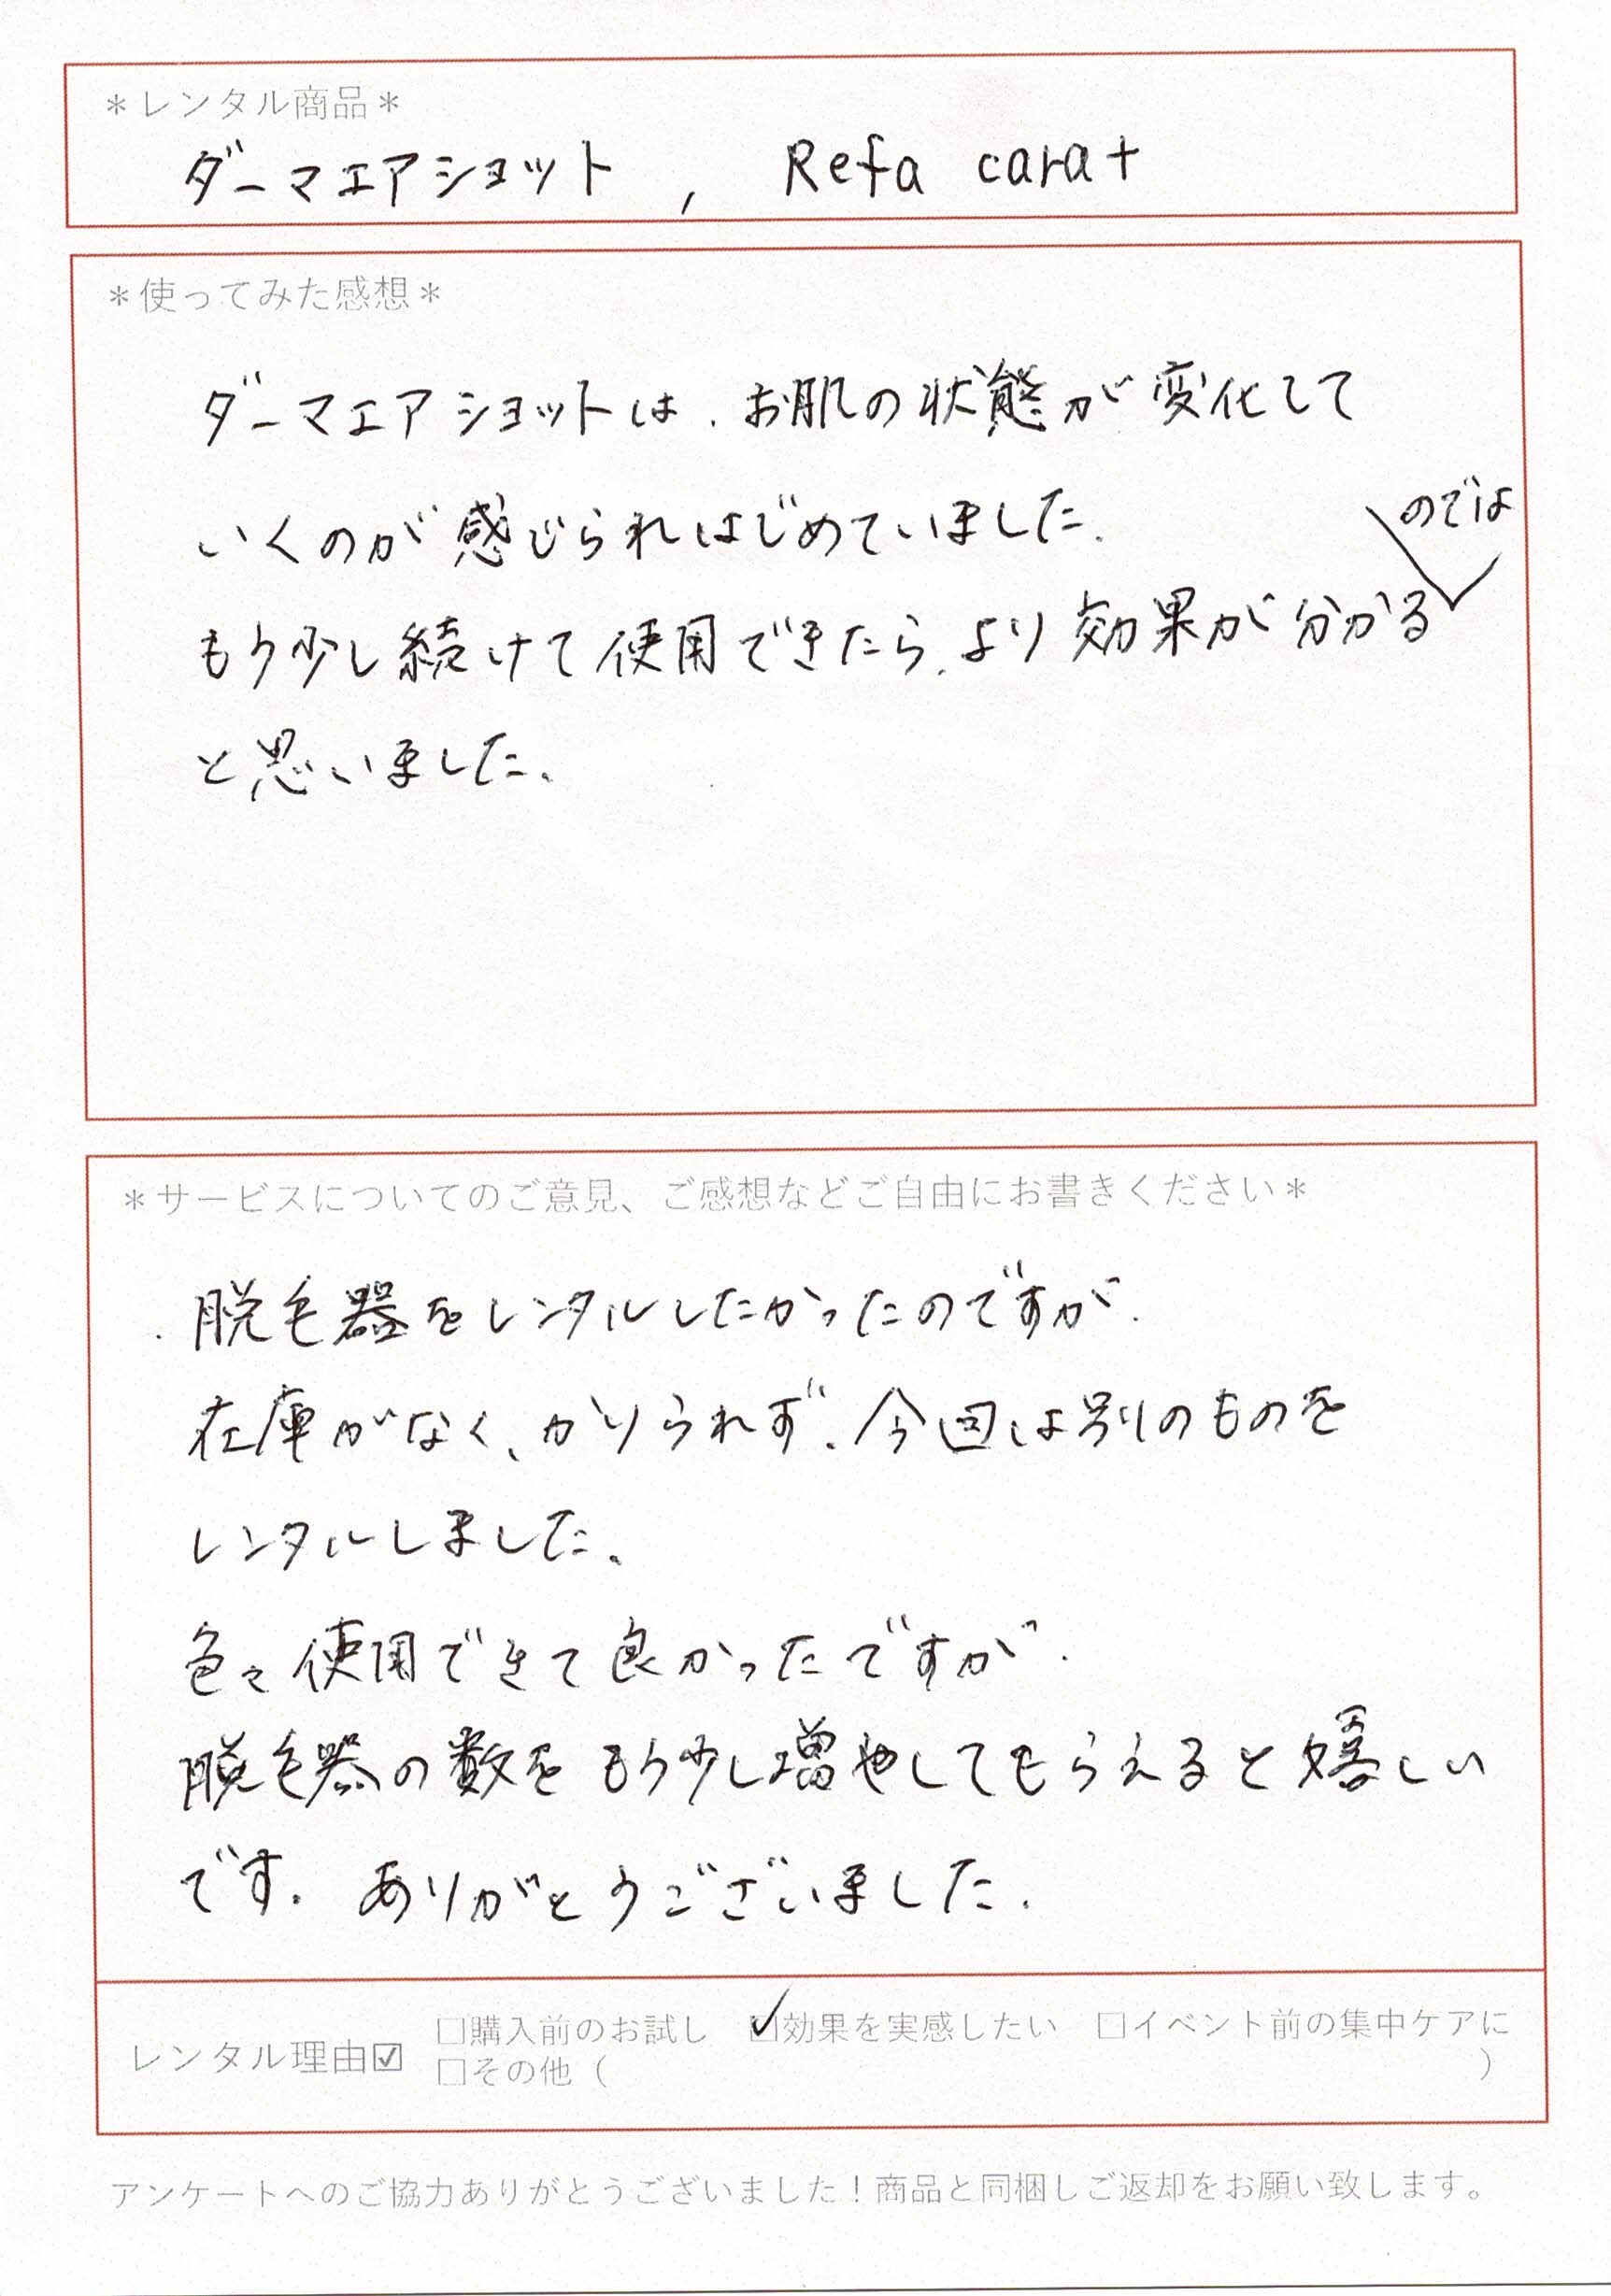 ＊レンタル商品＊
ダーマエアショット , Refa carat
＊使ってみた感想＊
ダーマエアショットは、お肌の状態が変化して
いくのが感じられはじめていました。
のでは
もう少し続けて使用できたら、より効果が分かる
と思いました。
＊サービスについてのご意見、ご感想などご自由にお書きください＊
脱毛器をレンタルしたかったのですが、
在庫がなく、かりられず、今回は別のものを
レンタルしました。
色々使用できて良かったですが、
脱毛器の数をもう少し増やしてもらえると嬉しい
です。ありがとうございました。
レンタル理由☑ □購入前のお試し ☑効果を実感したい □イベント前の集中ケアに
□その他（ ）
アンケートへのご協力ありがとうございました！商品と同梱しご返却をお願い致します。